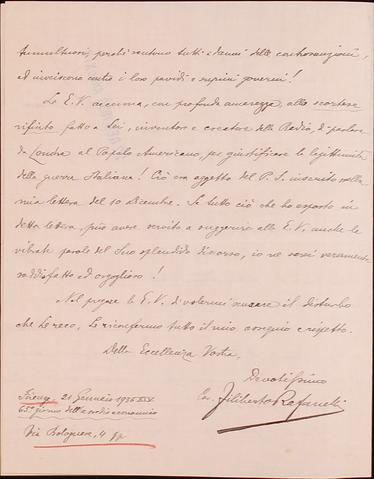 tumultuosi, perché sentono tutti i danni delle controsanzioni,
ed inveiscono contro i loro pavidi e supini governi!
La E. V. accenna, con profonda amarezza, allo scortese
rifiuto fatto a Lei, inventore e creatore della Radio, di parlare
da Londra al Popolo Americano, per giustificare la legittimità
della guerra Italiana! Ciò era oggetto del P. S. inscritto nella
mia lettera del 10 Dicembre. Se tutto ciò che ho esposto in
detta lettera, può avere servito a suggerire alla E. V. anche le
vibrate parole del Suo splendido discorso, io ne sarei veramente
soddisfatto ed orgoglioso!
Nel pregare la E. V. di volermi scusare il disturbo
che Le reco, Le riconfermo tutto il mio ossequio e rispetto.
Della Eccellenza Vostra,
Devotissimo
Filiberto Rafanelli
Firenze, 21 Gennaio 1936 XIV
65° giorno dell'assedio economico
Via Bolognese, 4